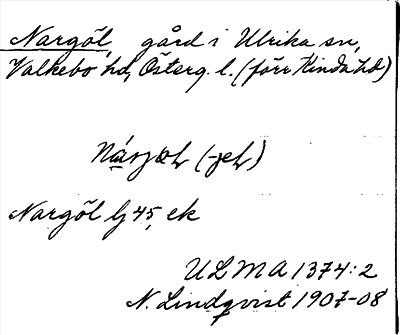 Nargöl, gård i Ulrika sn,
Valkebo hd, Österg. l. (förr Kinda hd)
Nargöl lj 45, ek
ULMA 1374:2
N. Lindqvist 1907-08